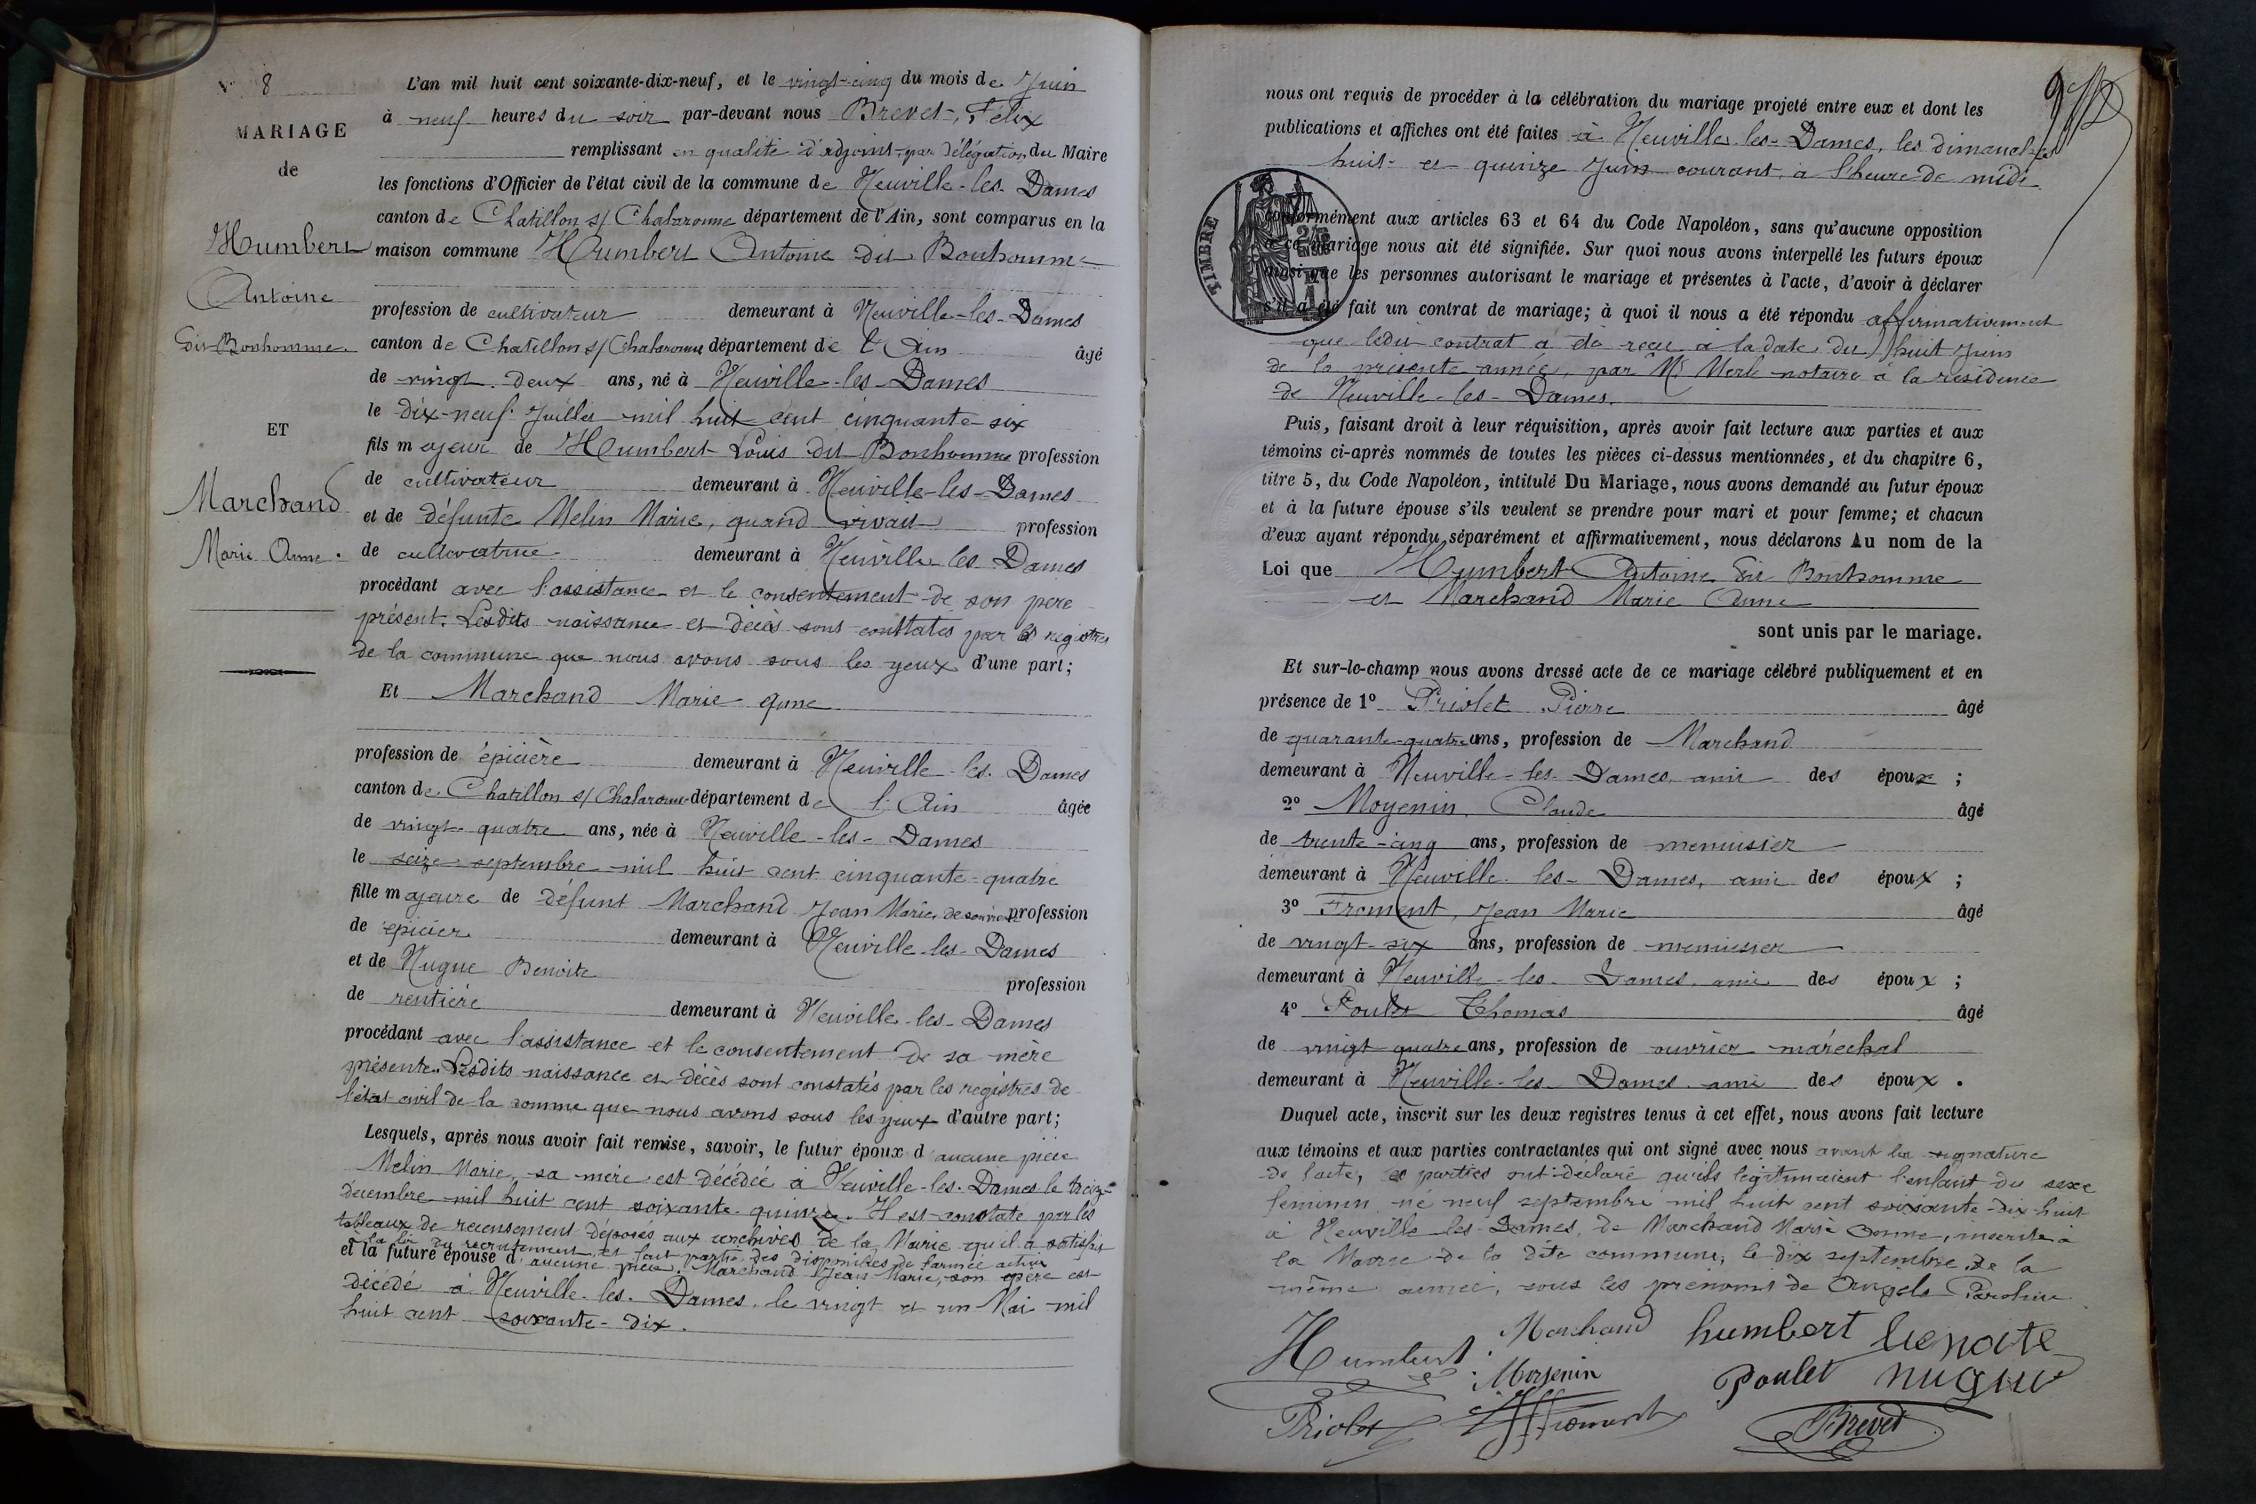 N° 8
MARIAGE
de
Humbert
Antoine
dit Bonhomme.
ET
Marchand
Marie Anne.
L'an mil huit cent soixante-dix-neuf, et le vingt-cinq du mois de Juin
à neuf heures du soir par-devant nous Brevet, Félix
remplissant en qualité d'adjoint par délégation du Maire
les fonctions d'Officier de l'état civil de la commune de Neuville-les-Dames
canton de Chatillon s/ Chalaronne département de l'Ain, sont comparus en la
maison commune Humbert Antoine dit Bonhomme
profession de cultivateur demeurant à Neuville-les-Dames
canton de Chatillon s/ Chalaronne département de l'Ain âgé
de vingt-deux ans, né à Neuville-les-Dames
le dix-neuf Juillet mil huit cent cinquante-six
fils majeur de Humbert Louis dit Bonhomme profession
de cultivateur demeurant à Neuville-les-Dames
et de défunte Melin Marie, quand vivait profession
de cultivatrice demeurant à Neuville les Dames
procédant avec l'assistance et le consentement de son pere
présent. Lesdits naissance et décès sont constatés par les registres
de la commune que nous avons sous les yeux d'une part;
Et Marchand Marie Anne
profession de épicière demeurant à Neuville-les-Dames
canton de Chatillon s/ Chalaronne département de l'Ain âgée
de vingt-quatre ans, née à Neuville-les-Dames
le seize septembre mil huit cent cinquante-quatre
fille majeure de défunt Marchand Jean Marie, de son vivant profession
de épicier demeurant à Neuville-les-Dames
et de Nugue Benoite profession
de rentière demeurant à Neuville-les-Dames
procédant avec l'assistance et le consentement de sa mère
présente. Lesdits naissance et décès sont constatés par les registres de
l'état civil de la comme que nous avons sous les yeux d'autre part;
Lesquels, après nous avoir fait remise, savoir, le futur époux d'aucune pièce
Melin Marie, sa mère est décédée à Neuville-les-Dames le treize
décembre mil huit cent soixante-quinze. Il est constaté par les
tableaux de recensement déposés aux archives de la Mairie qu'il a satisfait
à la loi du recrutement et fait partie des disponibles de l'armée active
et la future épouse d'aucune pièce. Marchand Jean Marie, son père est
décédé à Neuville-les-Dames, le vingt et un Mai mil
huit cent soixante-dix.
nous ont requis de procéder à la célébration du mariage projeté entre eux et dont les
publications et affiches ont été faites à Neuville-les-Dames, les dimanches
huit et quinze Juin courant, à l'heure de midi
TIMBRE
conformément aux articles 63 et 64 du Code Napoléon, sans qu'aucune opposition
à ce mariage nous ait été signifiée. Sur quoi nous avons interpellé les futurs époux
ainsi que les personnes autorisant le mariage et présentes à l'acte, d'avoir à déclarer
s'il a été fait un contrat de mariage; à quoi il nous a été répondu affirmativement
que ledit contrat a été reçu à la date du huit Juin
de la présente année, par Me Merle notaire à la résidence
de Neuville-les-Dames.
Puis, faisant droit à leur réquisition, après avoir fait lecture aux parties et aux
témoins ci-après nommés de toutes les pièces ci-dessus mentionnées, et du chapitre 6,
titre 5, du Code Napoléon, intitulé Du Mariage, nous avons demandé au futur époux
et à la future épouse s'ils veulent se prendre pour mari et pour femme; et chacun
d'eux ayant répondu séparément et affirmativement, nous déclarons Au nom de la
Loi que Humbert Antoine dit Bonhomme
et Marchand Marie Anne
sont unis par le mariage.
Et sur-le-champ nous avons dressé acte de ce mariage célébré publiquement et en
présence de 1° Priolet Pierre âgé
de quarante-quatre ans, profession de Marchand
demeurant à Neuville-les-Dames, ami des époux;
2° Moyenin, Claude âgé
de trente-cinq ans, profession de menuisier
demeurant à Neuville-les-Dames, ami des époux;
3° Froment, Jean Marie âgé
de vingt-six ans, profession de menuisier
demeurant à Neuville-les-Dames, ami des époux;
4° Poulet Thomas âgé
de vingt quatre ans, profession de ouvrier maréchal
demeurant à Neuville-les-Dames ami des époux.
Duquel acte, inscrit sur les deux registres tenus à cet effet, nous avons fait lecture
aux témoins et aux parties contractantes qui ont signé avec nous avant la signature
de l'acte, les parties ont déclaré qu'ils légitimaient l'enfant du sexe
féminin né neuf septembre mil huit cent soixante-dix-huit
à Neuville les Dames, de Marchand Marie Anne, inscrite à
la Mairie de la dite commune, le dix septembre de la
même année, sous les prénoms de Angele
Humbert Marchand humbert benoite
Moyenin Poulet nugue
Priolet Froment Brevet